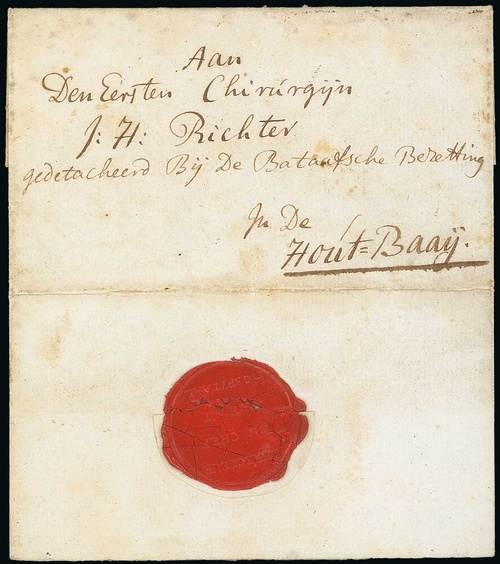 Aan
Den Eersten Chirúrgijn
J: H: Richter
gedetacheerd Bij De Bataafsche Bezetting
In De
Hoút=Baaij.
HOSPITAAL
EN CHEF